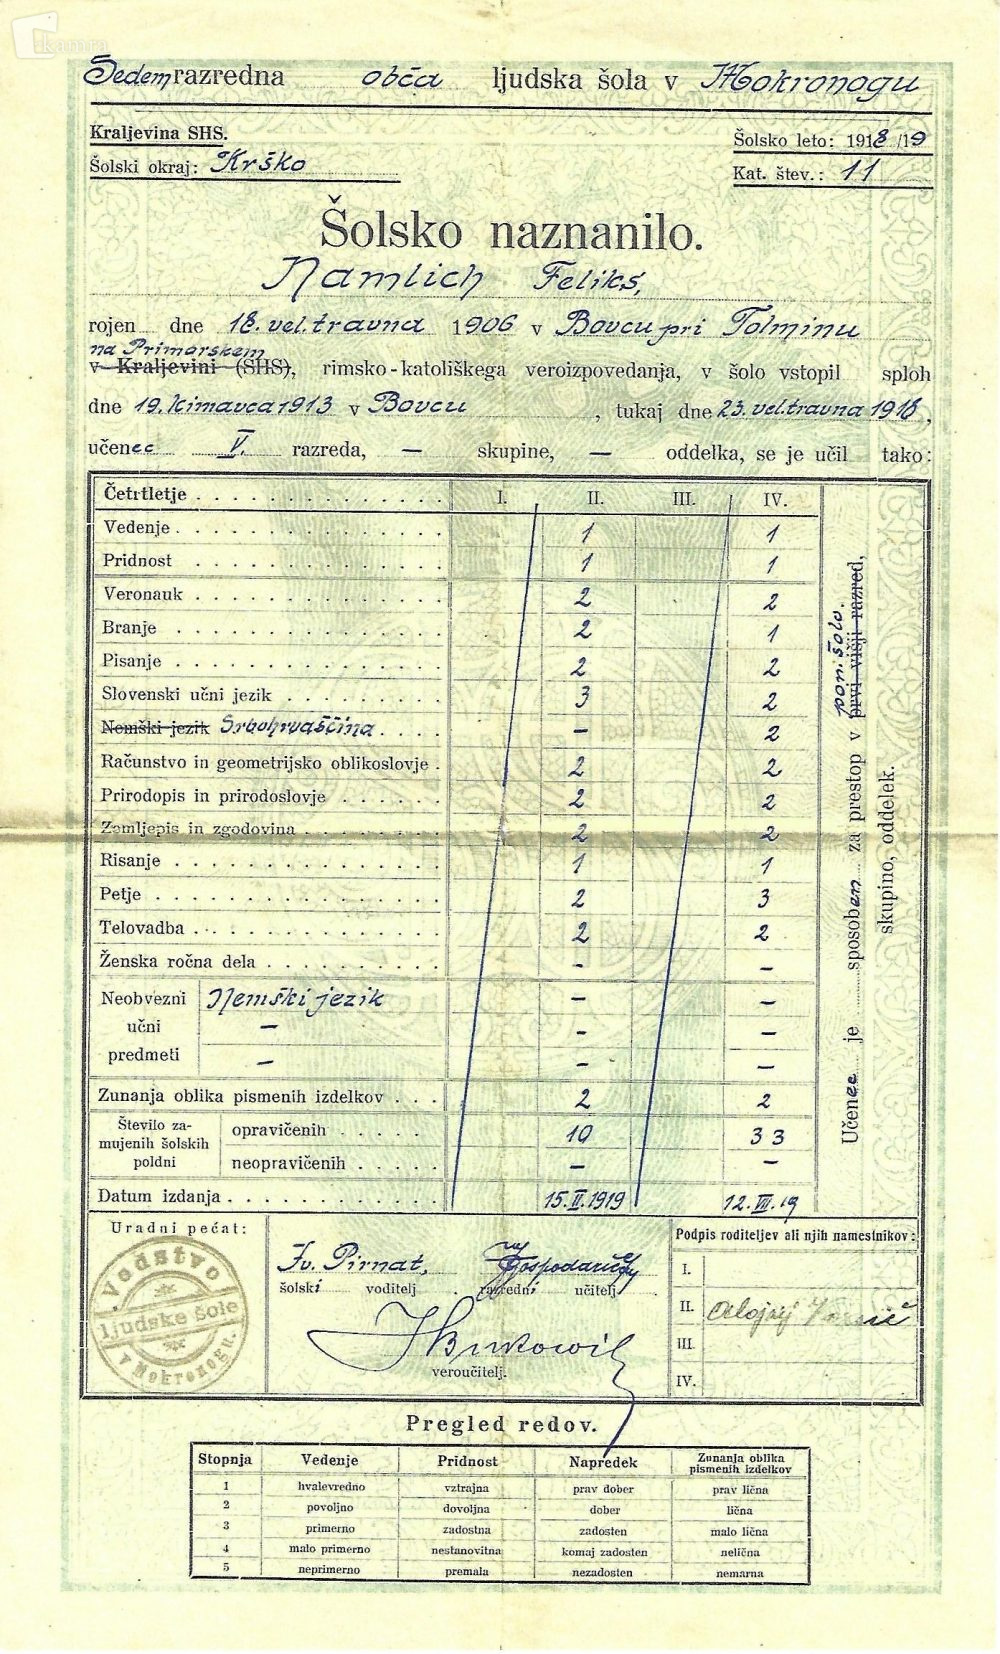 kamra
Sedemrazredna obča ljudska šola v Mokronogu
Kraljevina SHS.
Šolski okraj: Krško
Šolsko leto: 1918/19
Kat. štev.: 11
Šolsko naznanilo.
Namlich Feliks,
rojen dne 18. vel. travna 1906 v Bovcu pri Tolminu
na Primorskem
v Kraljevini (SHS), rimsko-katoliškega veroizpovedanja, v šolo vstopil sploh
dne 19. kimavca 1913 v Bovcu, tukaj dne 23. vel. travna 1918,
učenec V. razreda, — skupine, — oddelka, se je učil tako:
Četrtletje I. II. III. IV.
Vedenje 1 1
Pridnost 1 1
Veronauk 2 2
Branje 2 1
Pisanje 2 2
Slovenski učni jezik 3 2
Nemški jezik Srbohrvaščina - 2
Računstvo in geometrijsko oblikoslovje 2 2
Prirodopis in prirodoslovje 2 2
Zemljepis in zgodovina 2 2
Risanje 1 1
Petje 2 3
Telovadba 2 2
Ženska ročna dela - -
Neobvezni učni predmeti
Nemški jezik - -
- - -
- - -
Zunanja oblika pismenih izdelkov 2 2
Število zamujenih šolskih poldni
opravičenih 10 33
neopravičenih - -
Datum izdanja 15. II. 1919 12. VII. 19
Učenec je sposoben za prestop v prvi višji razred, pon. šolo.
skupino, oddelek.
Uradni pečat:
Vodstvo
ljudske šole
v Mokronogu.
Iv. Pirnat,
šolski voditelj
razredni učitelj
veroučitelj.
Podpis roditeljev ali njih namestnikov:
I.
II. Alojzij
III.
IV.
Pregled redov.
Stopnja Vedenje Pridnost Napredek Zunanja oblika pismenih izdelkov
1 hvalevredno vztrajna prav dober prav lična
2 povoljno dovoljna dober lična
3 primerno zadostna zadosten malo lična
4 malo primerno nestanovitna komaj zadosten nelična
5 neprimerno premala nezadosten nemarna